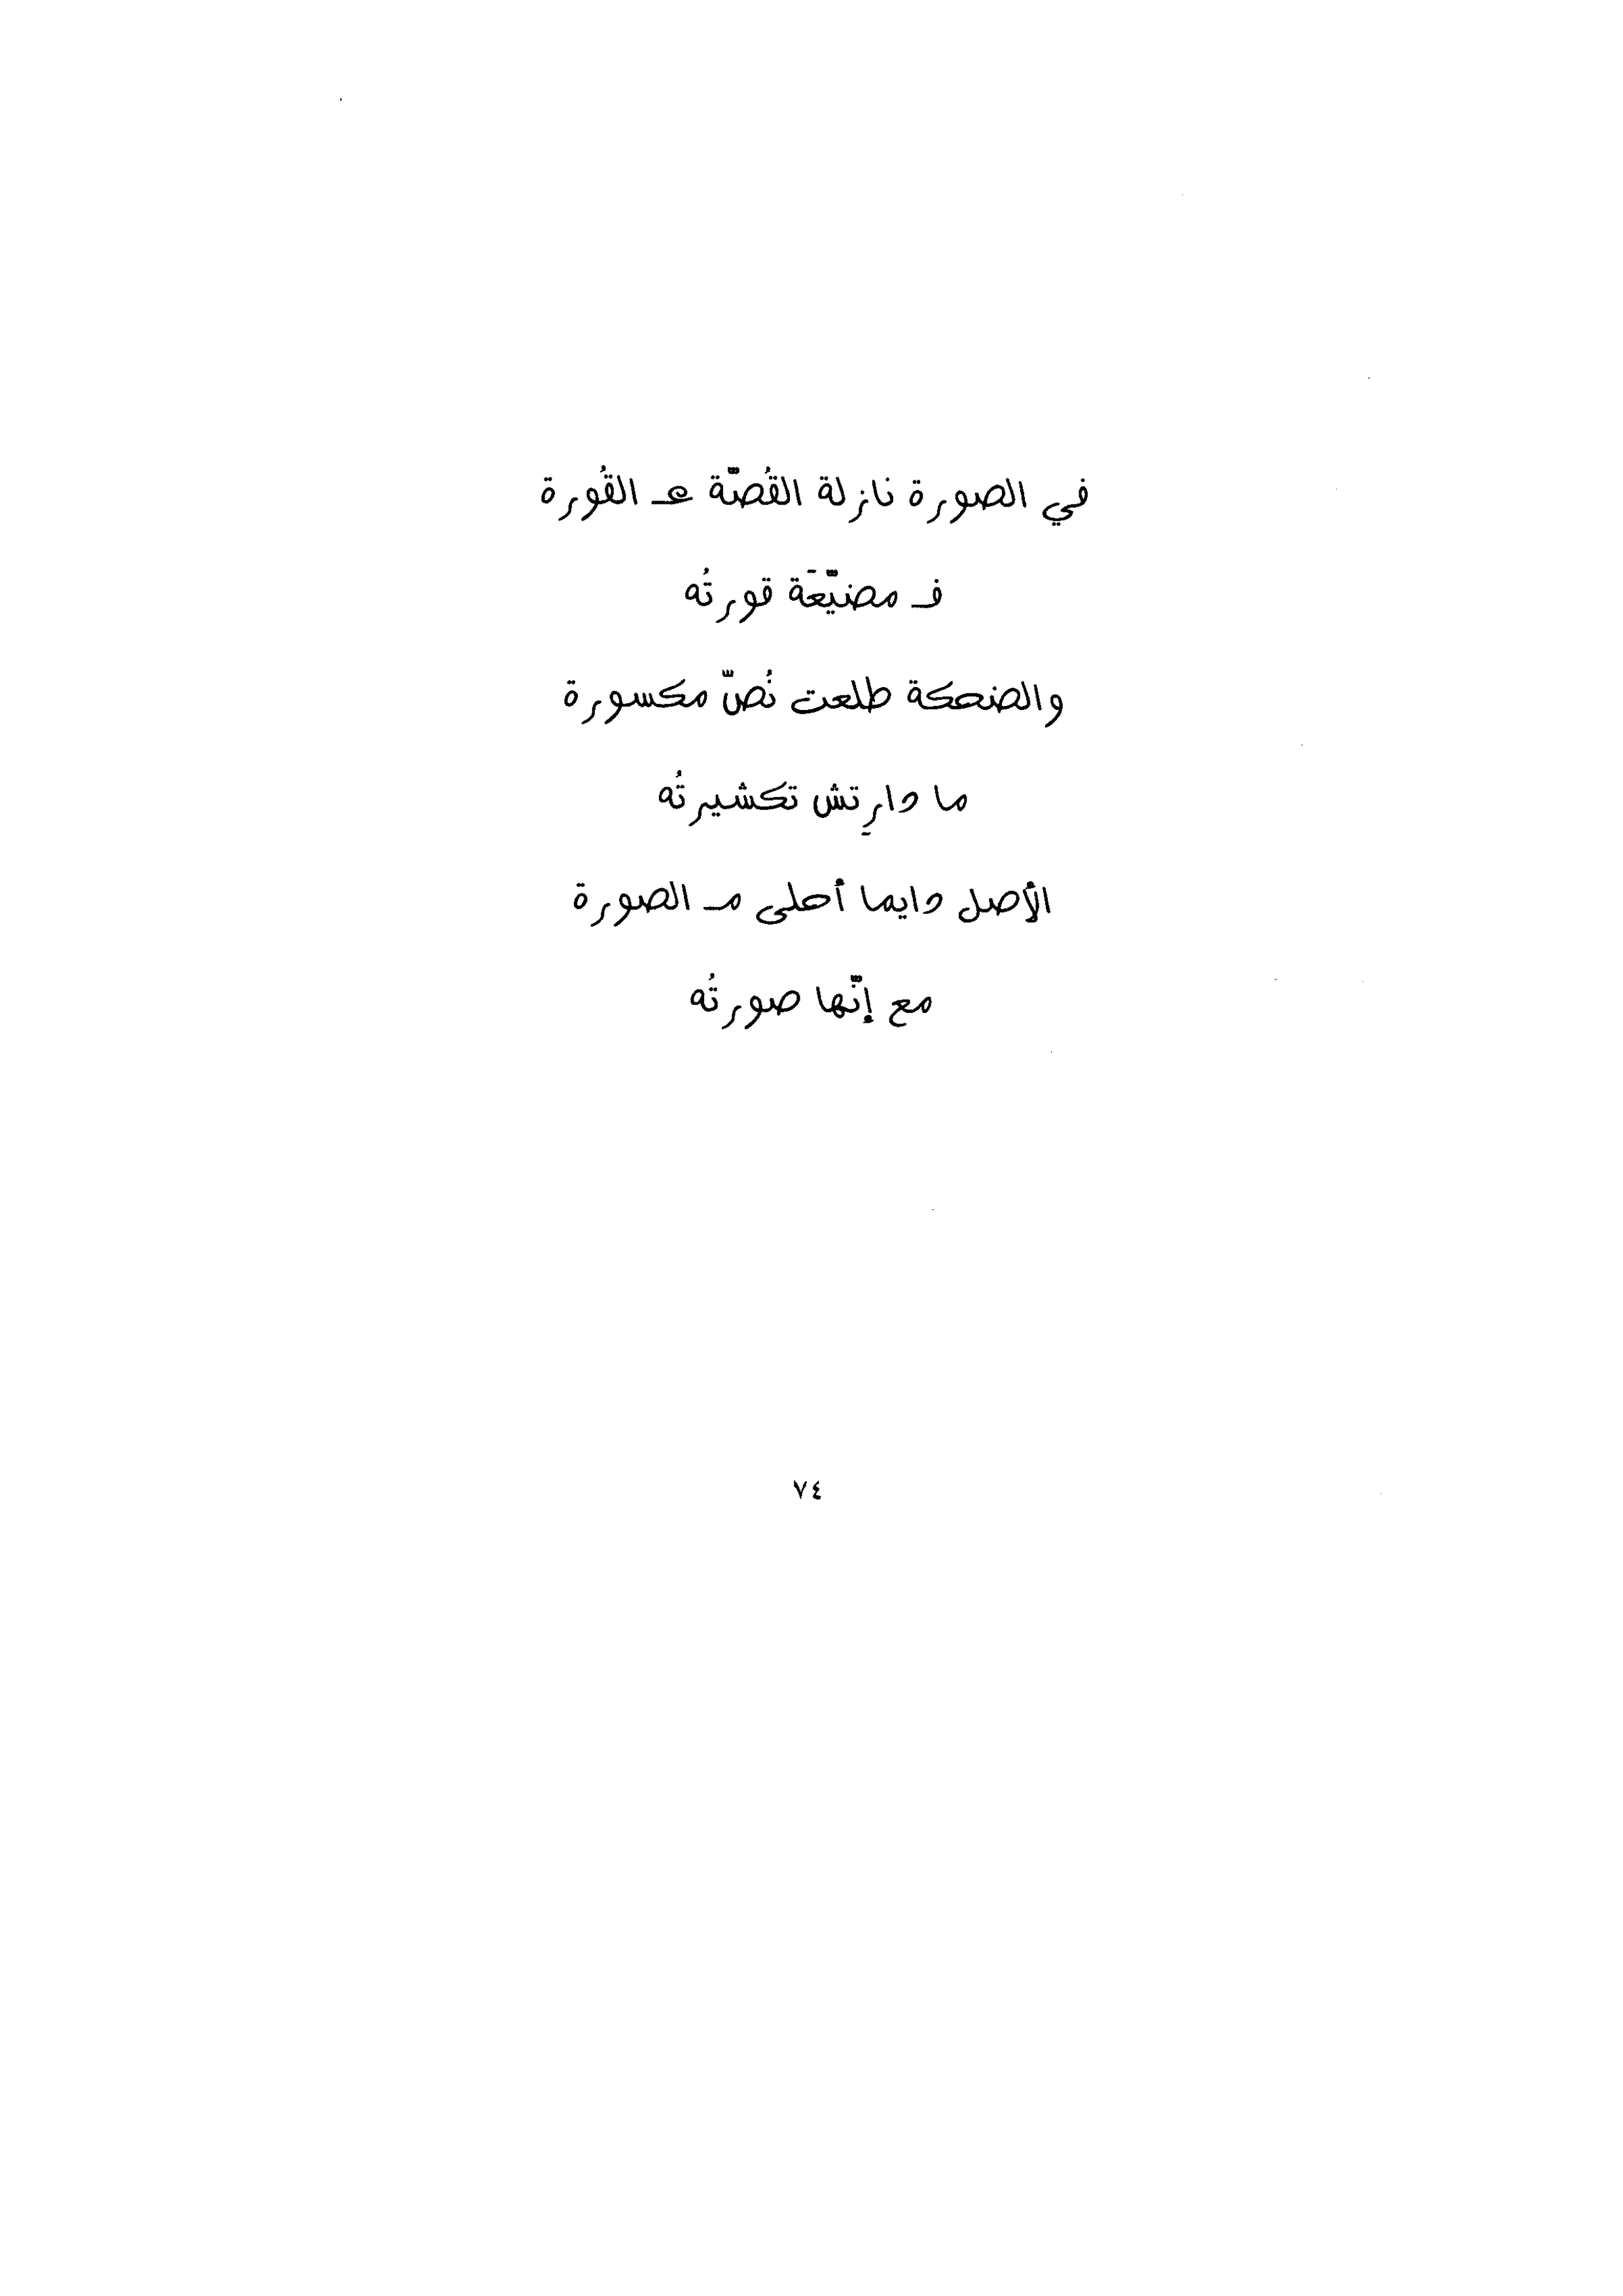 في الصورة نازلة القُصّة عـ القُورة
فـ مضيّعَة قورتُه
والضحكة طلعت نُصّ مكسورة
ما دارِتش تكشيرتُه
الأصل دايما أحلى مـ الصورة
مع إنّها صورتُه
٧٤